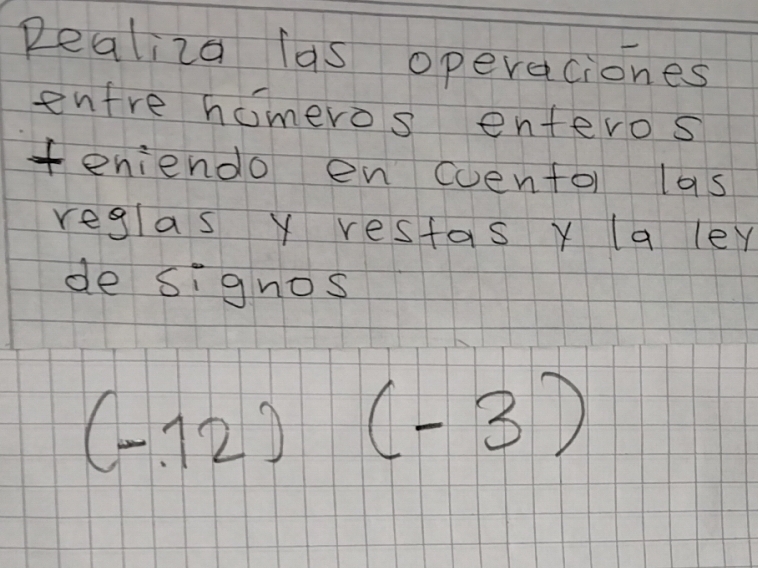 Realiza las operaciones
entre números enteros
teniendo en cuenta las
reglas y restas y la ley
de signos
(-.12) (-3)